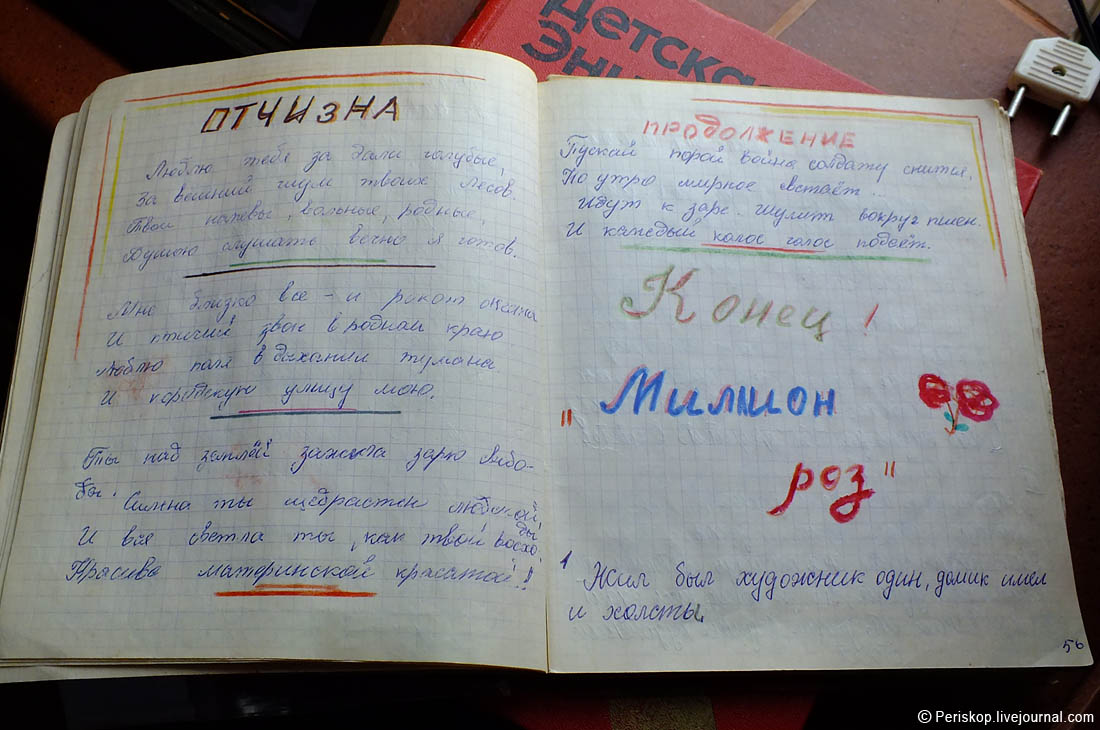 Детска
Эни
ОТЧИЗНА
Люблю тебя за дали голубые,
За вешний шум твоих лесов.
Твои напевы, вольные, родные,
Душою слушать вечно я готов.
Мне близко все – и рокот океана
И птичий звон в родном краю
Люблю поля в дыхании тумана
И городскую улицу мою.
Ты над землёй зажгла зарю
бы. Сильна ты щедростью людской,
И вся светла ты, как твои восхо
ды
Красива материнской красатой!!
ПРОДОЛЖЕНИЕ
Пускай порой война солдату снится,
Но утро мирное встаёт..
Идут к заре. Шумит вокруг пшен.
И каждый колос голос подаёт.
Конец!
"Миллион
роз"
1 Жил был художник один, домик имел
и холсты.
56
© Periskop.livejournal.com